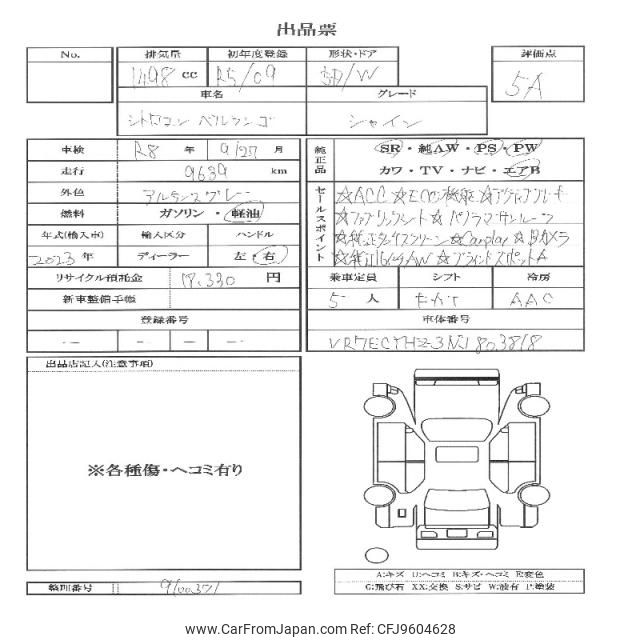 出品票
No. 排気量 初年度登録 形状・ドア 評価点
1498 cc R5/09 5D/W 5A
車名 グレード
シトロエン ベルランゴ シャイン
車検 R8 年 9/27 月
走行 9639 km
外色 アルデンスグレー
燃料 ガソリン・軽油
年式(輸入車) 輸入区分 ハンドル
2023 年 ディーラー 左・右
リサイクル預託金 17,330 円
新車整備手帳
登録番号
純正品 SR・純AW・PS・PW
カワ・TV・ナビ・エアB
セールスポイント ☆ACC ☆ECO機能 ☆アクティブブレーキ
☆ファブリックシート ☆パノラマサンルーフ
☆純正タッチスクリーン ☆Carplay ☆Bカメラ
☆純正16インチAW ☆ブラインドスポットA
乗車定員 シフト 冷房
5 人 AAC
車体番号
出品店記入(注意事項)
※各種傷・ヘコミ有り
A:キズ U:ヘコミ B:キズ・ヘコミ E:変色
G:飛び石 XX:交換 S:サビ W:波有 P:塗装
整理番号
CarFromJapan.com ID:CFJ9604628